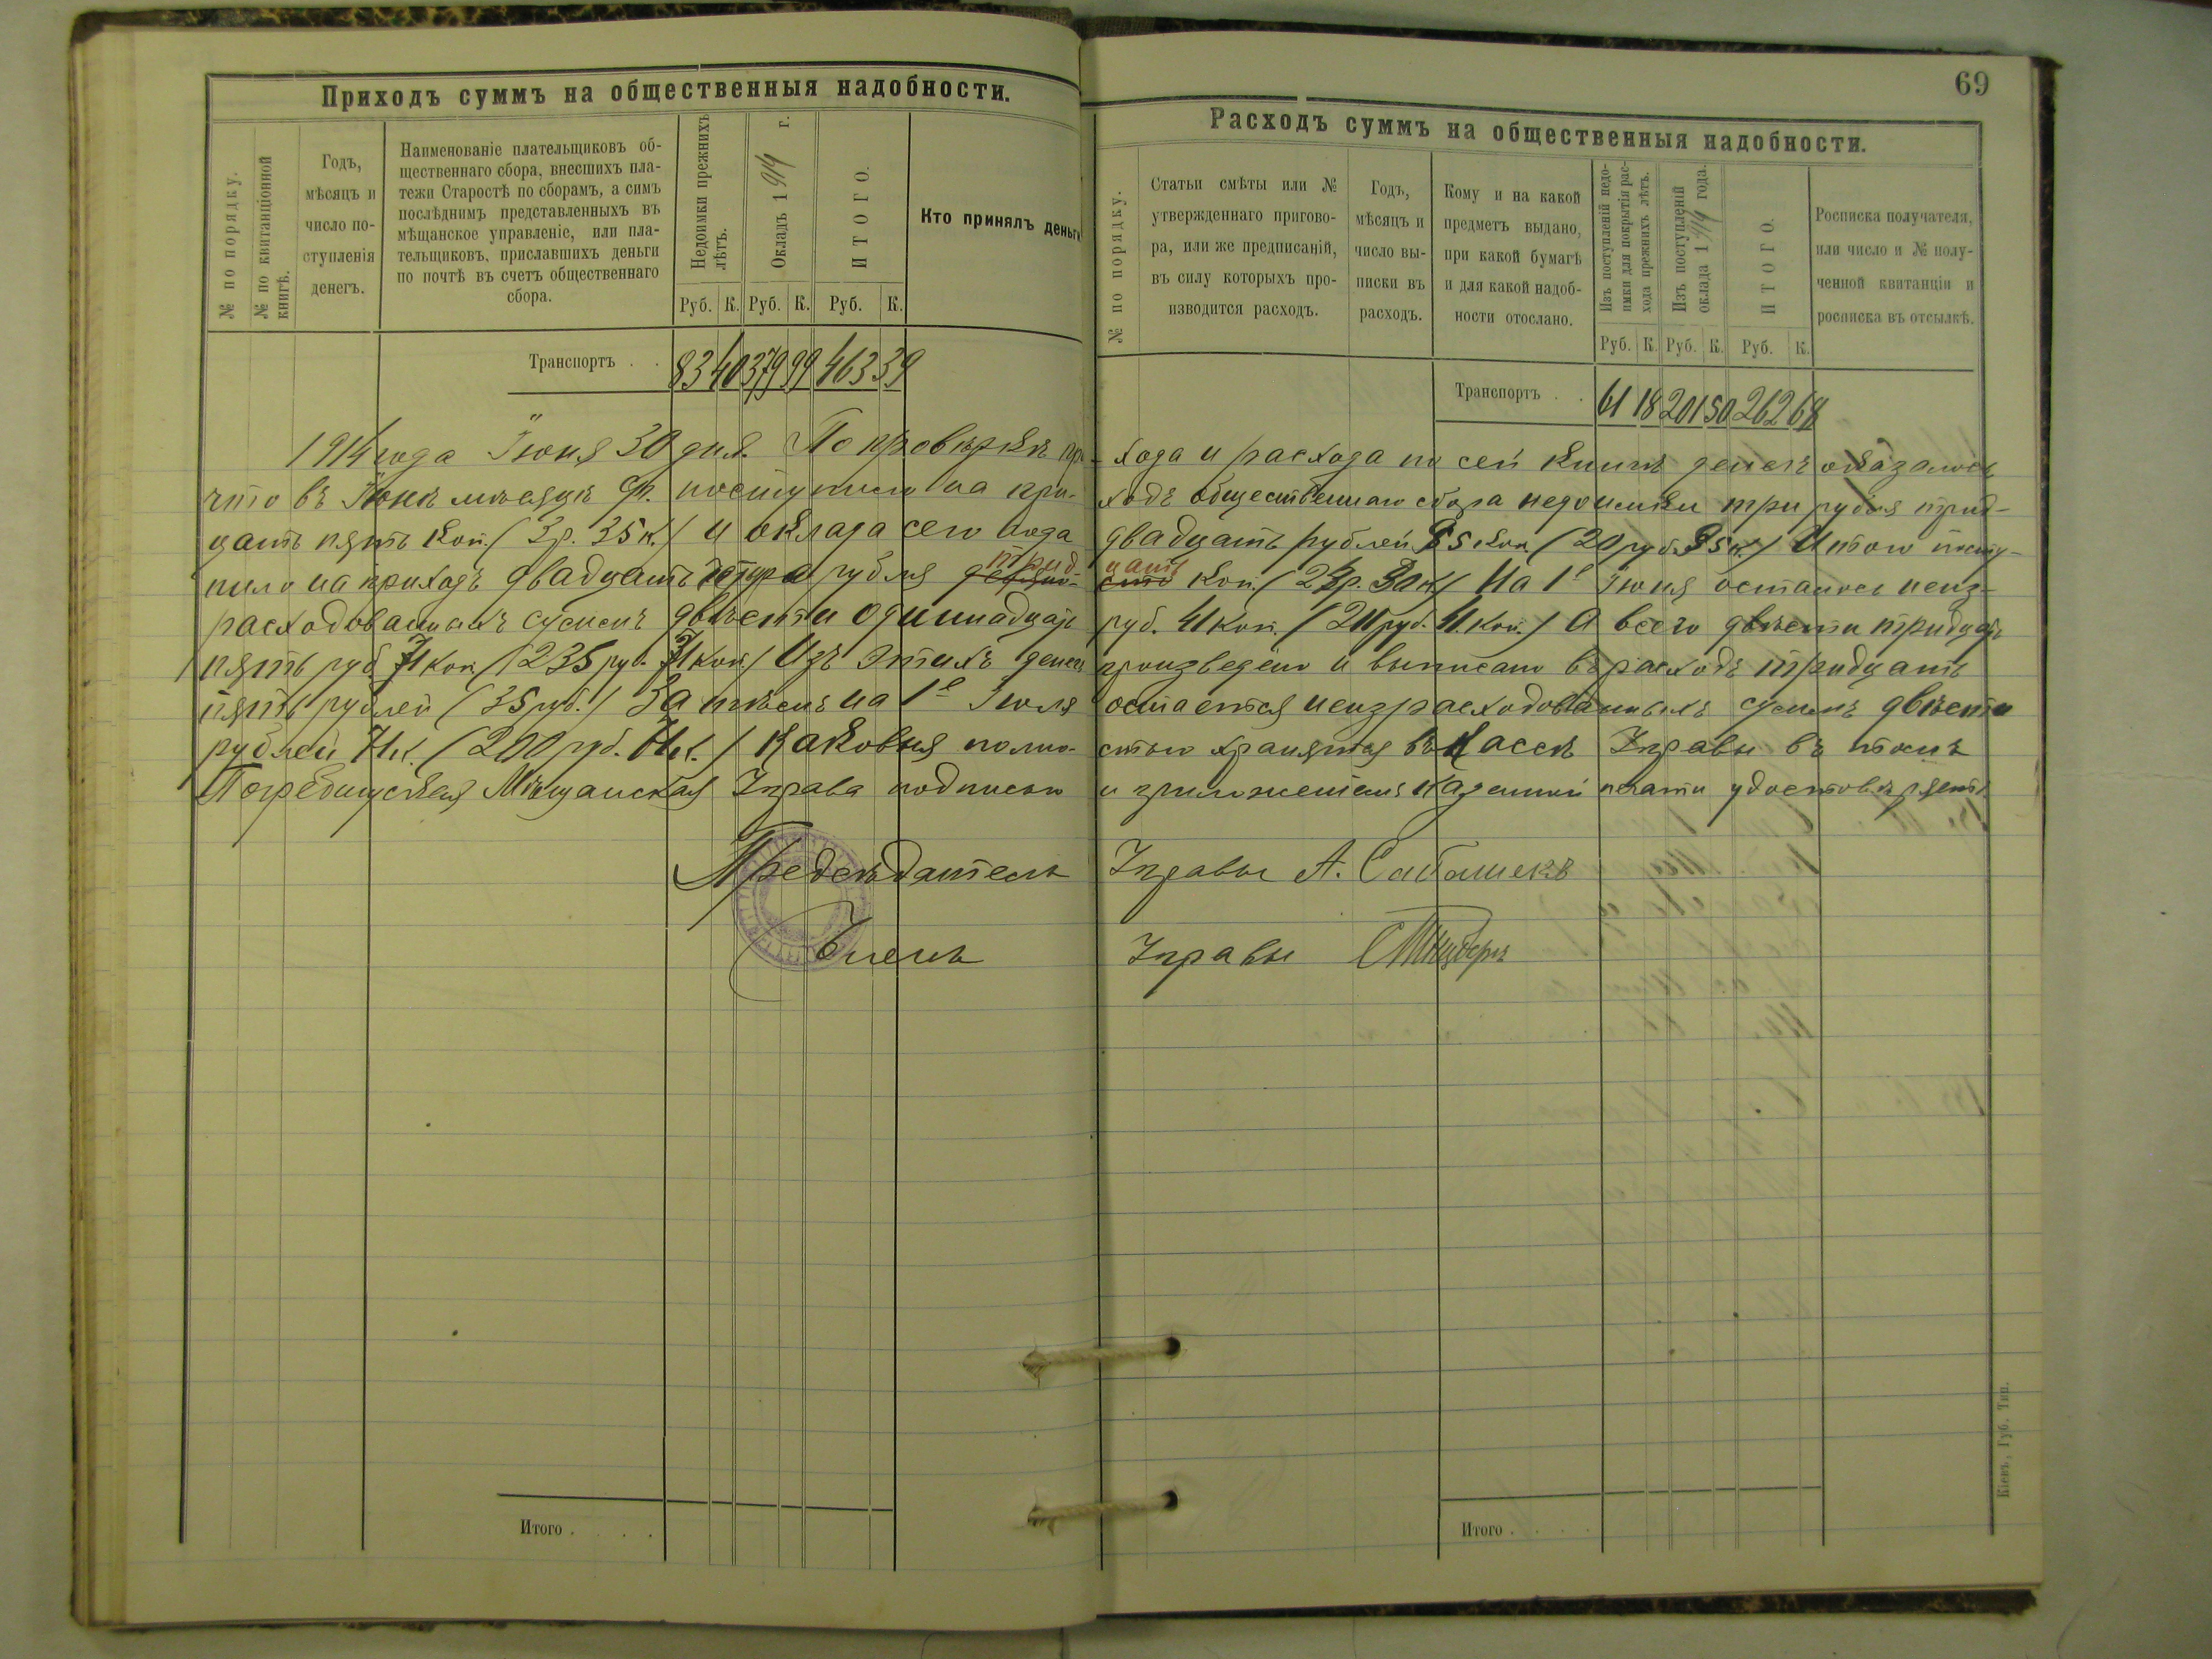 69
Приходъ суммъ на общественныя надобности.
№ по порядку.
№ по квитанціонной
книгѣ.
Годъ,
мѣсяцъ и
число по-
ступленія
денегъ.
Наименованіе плательщиковъ об-
щественнаго сбора, внесшихъ пла-
тежи Старостѣ по сборамъ, а симъ
послѣднимъ представленныхъ въ
мѣщанское управленіе, или пла-
тельщиковъ, приславшихъ деньги
по почтѣ въ счетъ общественнаго
сбора.
Недоимки прежнихъ
лѣтъ.
Окладъ 1914 г.
ИТОГО.
Кто принялъ деньги
Руб. К. Руб. К. Руб. К.
Транспортъ . . 83 40 379 99 463 39
Расходъ суммъ на общественныя надобности.
№ по порядку.
Статьи смѣты или №
утвержденнаго пригово-
ра, или же предписаній,
въ силу которыхъ про-
изводится расходъ.
Годъ,
мѣсяцъ и
число вы-
писки въ
расходъ.
Кому и на какой
предметъ выдано,
при какой бумагѣ
и для какой надоб-
ности отослано.
Изъ поступленій недо-
имки для покрытія рас-
хода прежнихъ лѣтъ.
Изъ поступленій
оклада 1914 года.
ИТОГО.
Росписка получателя,
или число и № полу-
ченной квитанціи и
росписка въ отсылкѣ.
Руб. К. Руб. К. Руб. К.
Транспортъ . . 61 18 201 50 262 68
1914 года Іюня 30 дня. По провѣркѣ при-хода и расхода по сей книгѣ денегъ оказалось
что въ Іюнѣ мѣсяцѣ поступило на при-ходъ общественнаго сбора недоимки три рубля трид-
цать пять коп. (3р. 35к.) и оклада сего года двадцать рублей 95 коп. (20 руб. 95к.) Итого посту-
пило на приходъ двадцать четыре рубля трид-цать коп. (24р. 30к.) На 1е Іюня осталось неиз-
расходованныхъ суммъ двѣсти одиннадцать руб. 41 коп. (211 руб. 41 коп.) А всего двѣсти тридцать
пять руб 71 коп. (235 руб. 71 коп.) Изъ этихъ денегъ произведено и выписано въ расходъ тридцать
пять рублей (35 руб.) Затѣмъ на 1е Іюля остается неизрасходованныхъ суммъ двѣсти
рублей 71к. (200 руб. 71к.) каковыя полно-стью хранятся въ Кассѣ Управы въ томъ
Погребищская Мѣщанская Управа подписью и приложеніемъ казенной печати удостовѣряетъ
Предсѣдатель Управы А.
Членъ Управы
Итого . . . .
Итого . . . .
Кіевъ, Губ. Тип.